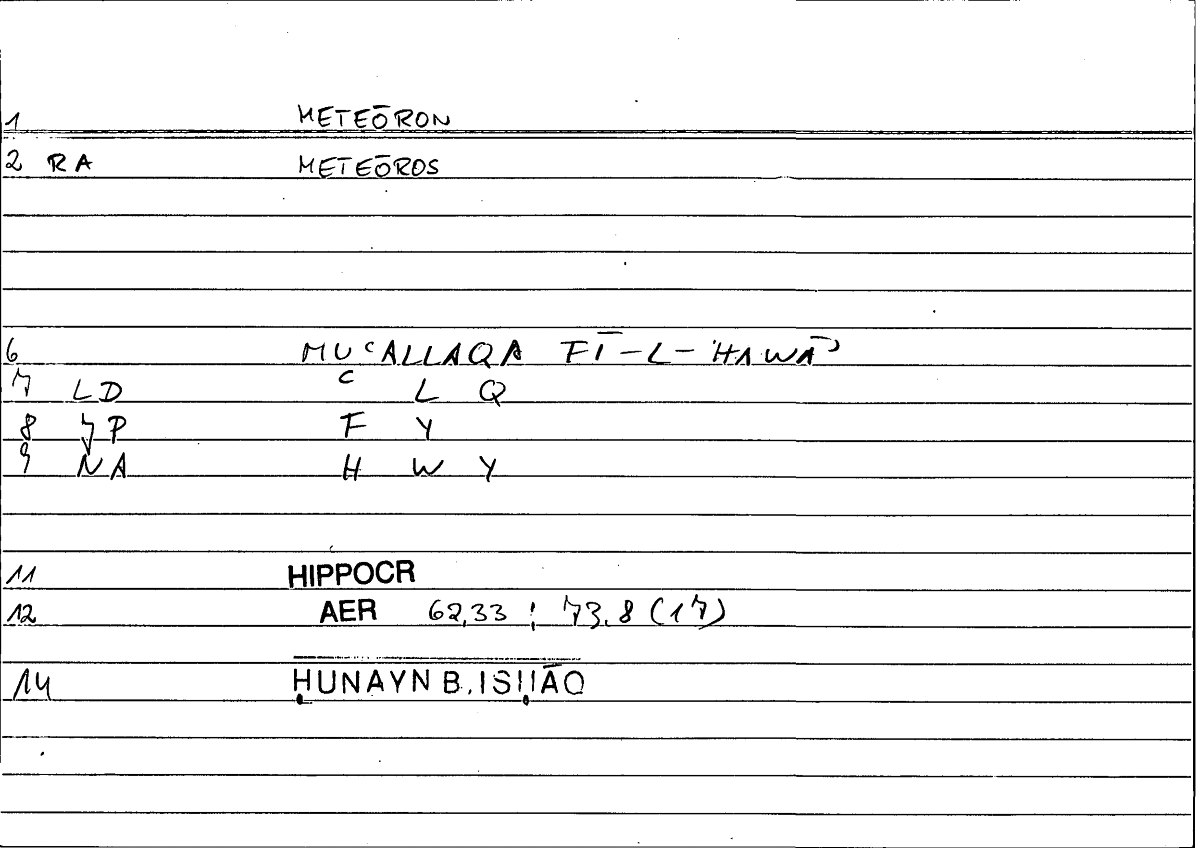 1 METEŌRON
2 RA METEŌROS
6 MUʿALLAQA FĪ-L-HAWĀʾ
7 LD ʿ L Q
8 YP F Y
9 NA H W Y
11 HIPPOCR
12 AER 62,33 ; 73,8 (17)
14 ḤUNAYN B. ISḤĀQ